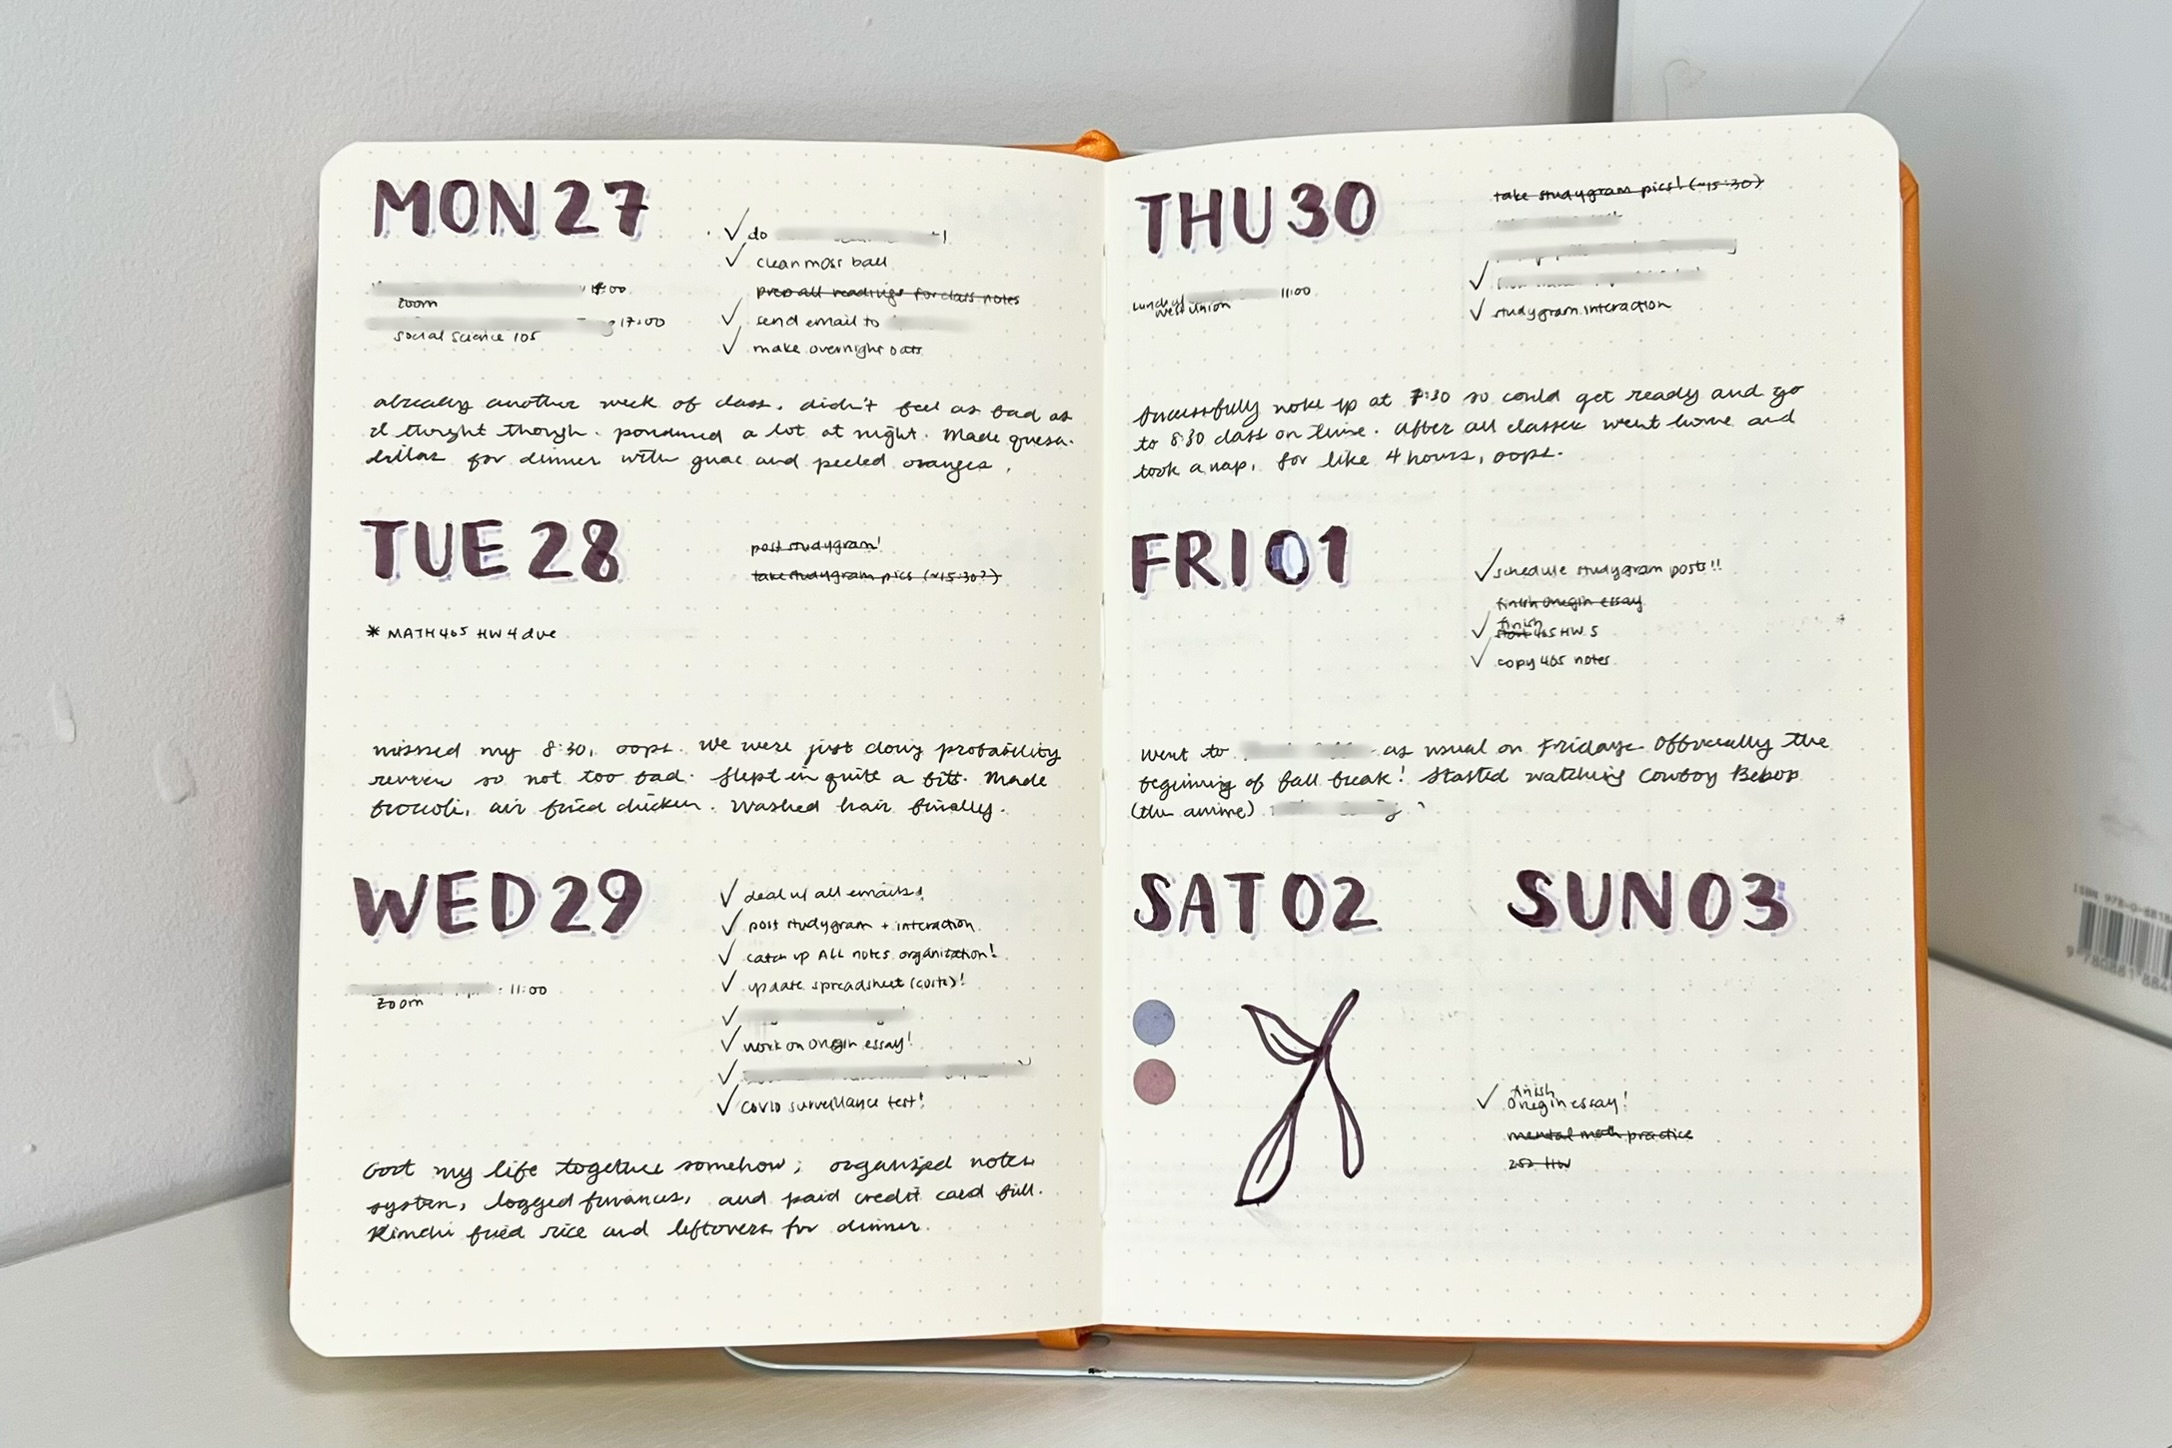 MON 27
✓ do !
✓ clean moss ball
prep all readings for class notes
✓ send email to
✓ make overnight oats
zoom
17:00
social science 105
already another week of class. didn't feel as bad as
I thought though. pondered a lot at night. Made quesa-
dillas for dinner with guac and peeled oranges.
TUE 28
post studygram!
take studygram pics (~15:30?)
* MATH 465 HW 4 due
missed my 8:30, oops. We were just doing probability
review so not too bad. Slept in quite a bit. Made
broccoli, air fried chicken. Washed hair finally.
WED 29
✓ deal w/ all emails!
✓ post studygram + interaction
✓ catch up ALL notes organization!
✓ update spreadsheet (costs)!
✓
✓ work on Onegin essay!
✓
✓ covid surveillance test!
11:00
zoom
Got my life together somehow; organized notes
system, logged finances, and paid credit card full.
Kimchi fried rice and leftovers for dinner.
THU 30
take studygram pics! (~15:30)
✓
✓ studygram interaction
11:00
West Union
Successfully woke up at 7:30 so could get ready and go
to 8:30 class on time. After all classes went home and
took a nap, for like 4 hours, oops.
FRI 01
✓ schedule studygram posts!!
finish Onegin essay
finish
✓ start 465 HW 5
✓ copy 465 notes
Went to as usual on Fridays. Officially the
beginning of fall break! Started watching Cowboy Bebop
(the anime)
SAT 02
SUN 03
finish
✓ Onegin essay!
mental math practice
252 HW